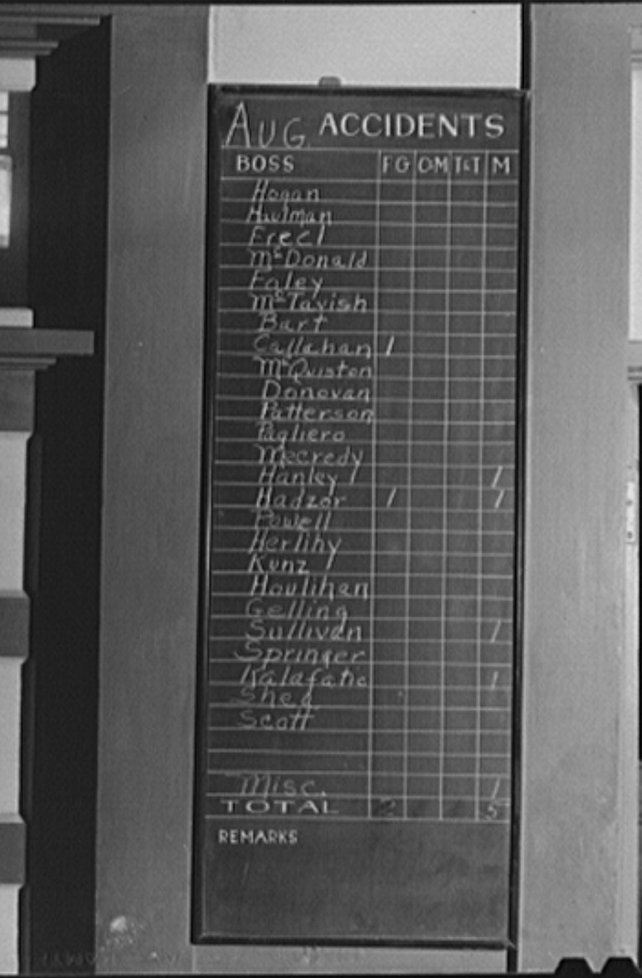 Aug ACCIDENTS
BOSS FG O-M T&T M
Hogan
Haulman
Erecl
McDonald
Foley
McTavish
Bart
Callahan 1
McQuiston
Donovan
Patterson
Pagliero
Mecredy
Hanley 1
Hadzor 1 1
Powell
Herlihy
Kunz
Houlihan
Gelling
Sullivan 1
Springer
Kalafatic 1
Shea
Scott
Misc. 1
TOTAL 2 5
REMARKS